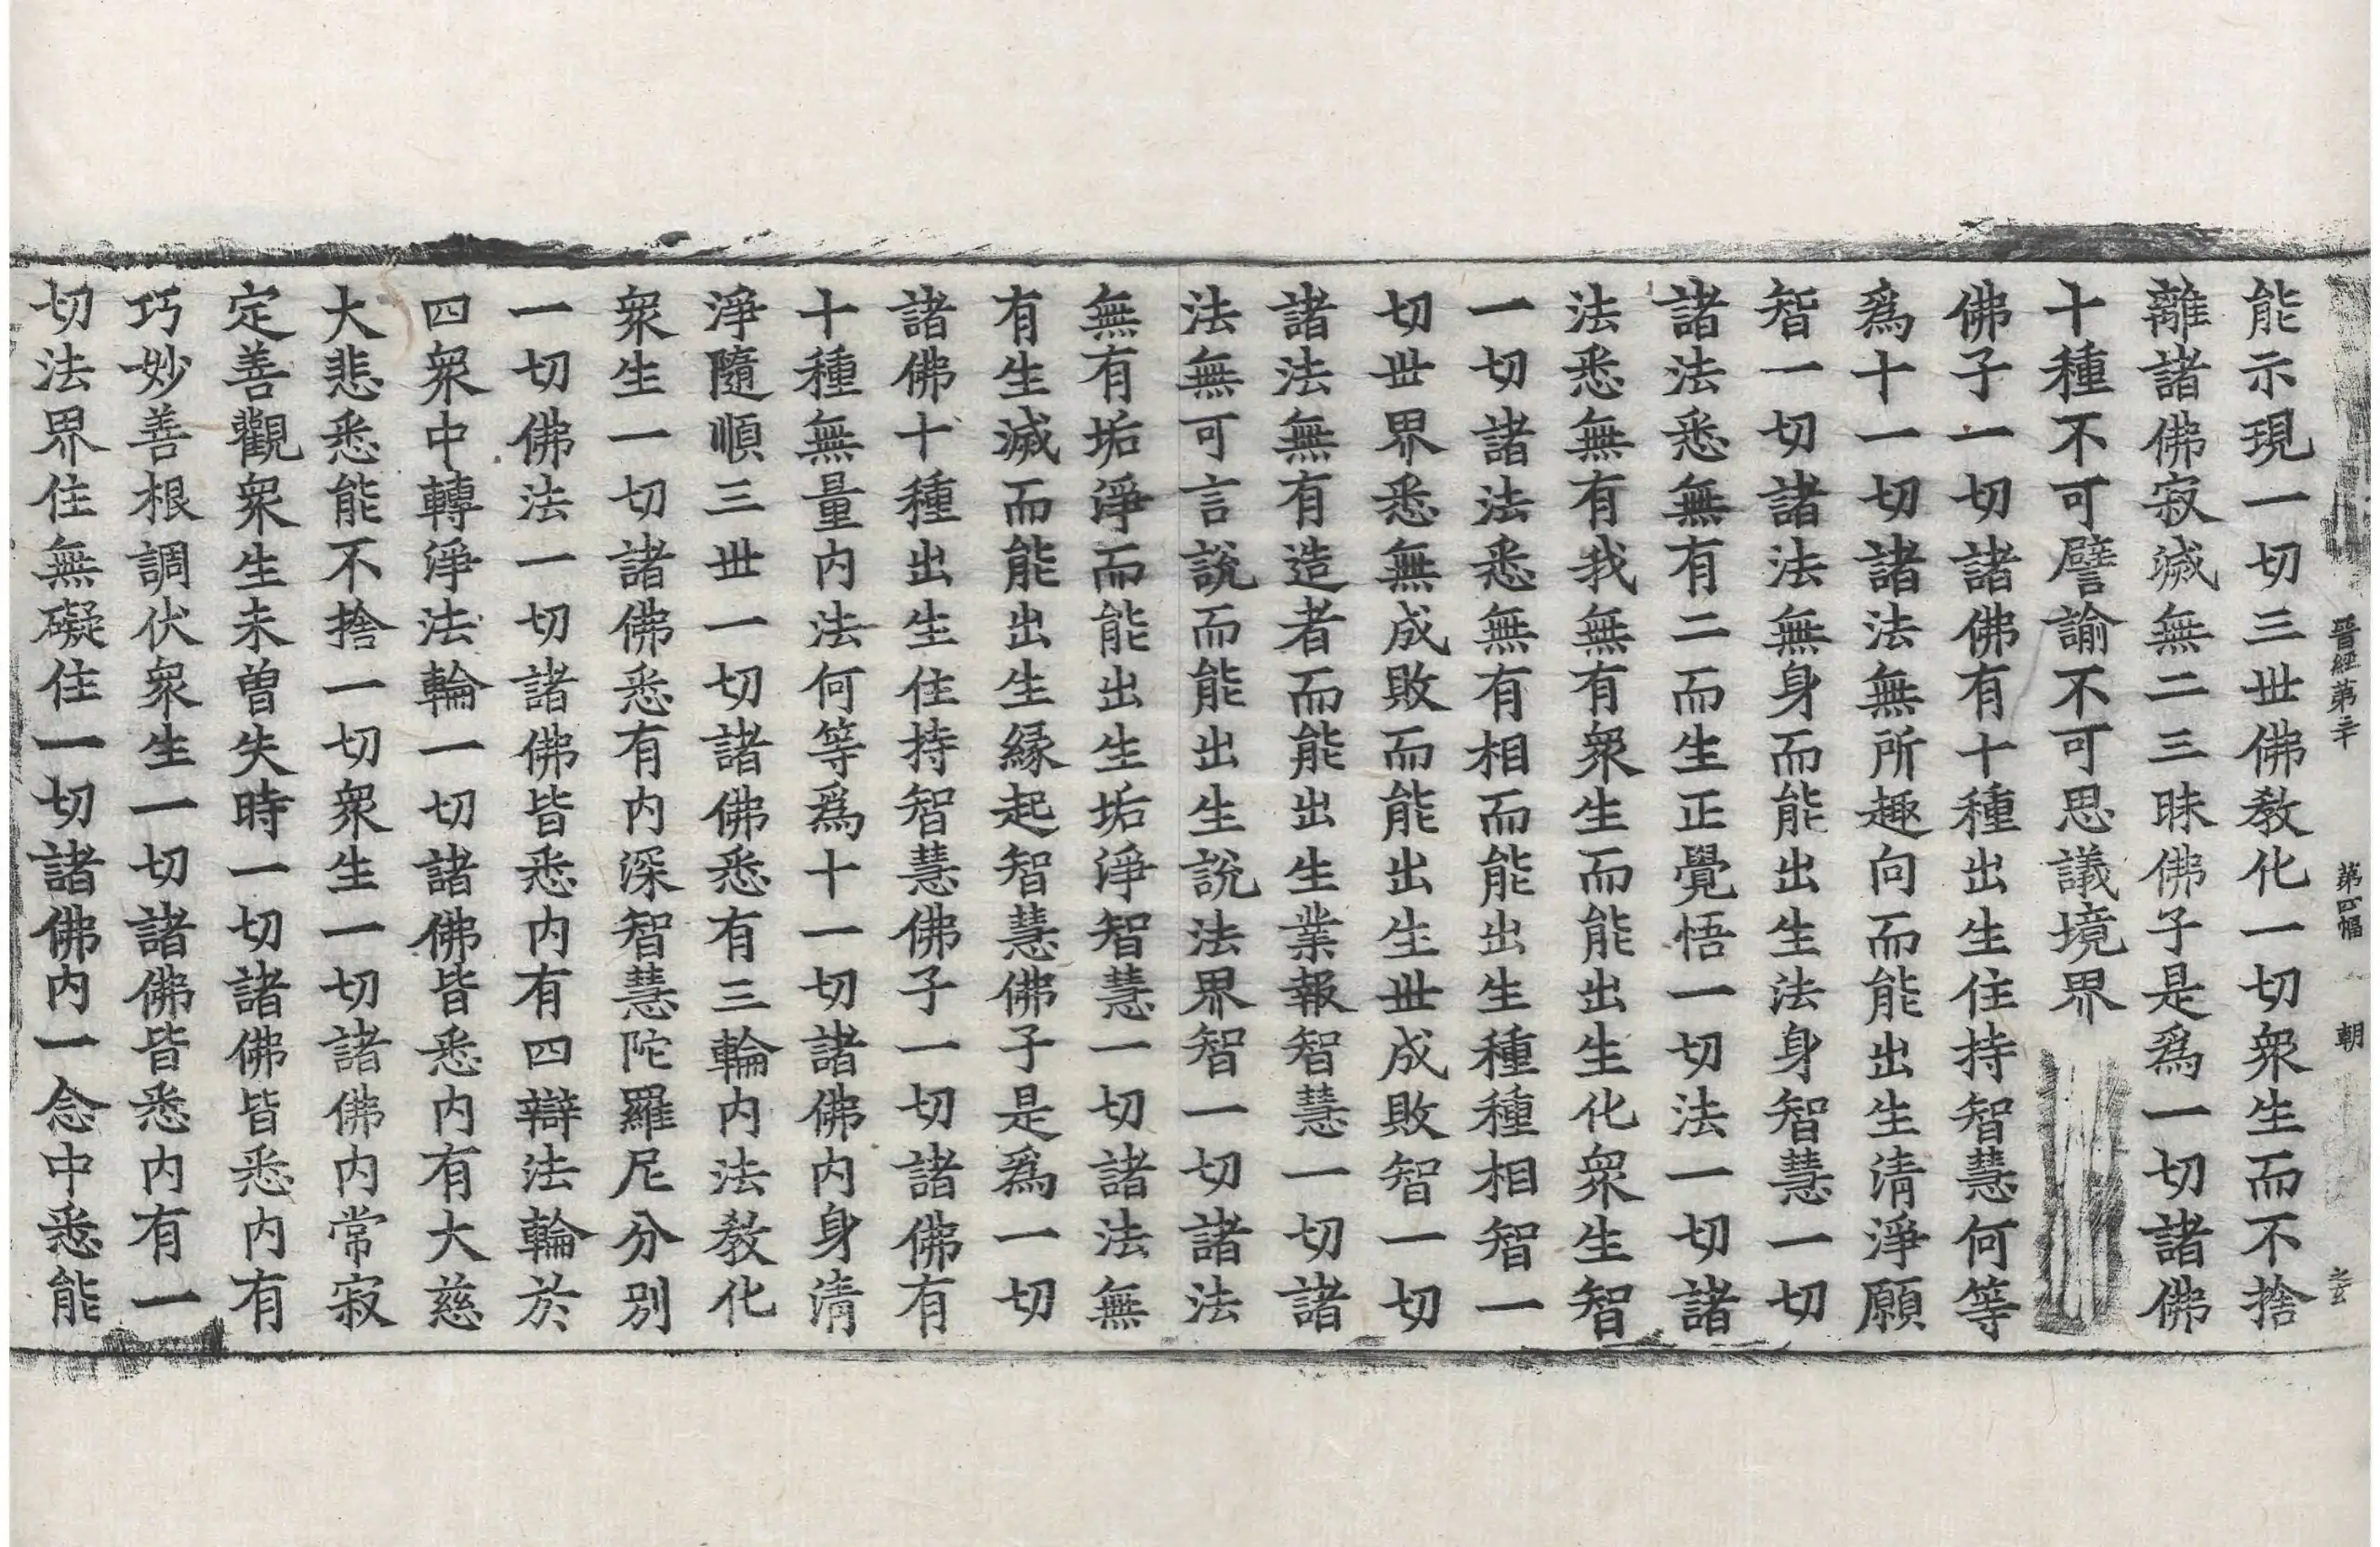 晋經第三十 第四幅 朝
能示現一切三世佛教化一切衆生而不捨
離諸佛寂滅無二三昧佛子是爲一切諸佛
十種不可譬諭不可思議境界
佛子一切諸佛有十種出生住持智慧何等
爲十一切諸法無所趣向而能出生清淨願
智一切諸法無身而能出生法身智慧一切
諸法悉無有二而生正覺悟一切法一切諸
法悉無有我無有衆生而能出生化衆生智
一切諸法悉無有相而能出生種種相智一
切世界悉無成敗而能出生世成敗智一切
諸法無有造者而能出生業報智慧一切諸
法無可言說而能出生說法界智一切諸法
無有垢淨而能出生垢淨智慧一切諸法無
有生滅而能出生縁起智慧佛子是爲一切
諸佛十種出生住持智慧佛子一切諸佛有
十種無量内法何等爲十一切諸佛内身清
淨隨順三世一切諸佛悉有三輪内法教化
衆生一切諸佛悉有内深智慧陀羅尼分別
一切佛法一切諸佛皆悉内有四辯法輪於
四衆中轉淨法輪一切諸佛皆悉内有大慈
大悲悉能不捨一切衆生一切諸佛内常寂
定善觀衆生未曽失時一切諸佛皆悉内有
巧妙善根調伏衆生一切諸佛皆悉内有一
切法界住無礙住一切諸佛内一念中悉能